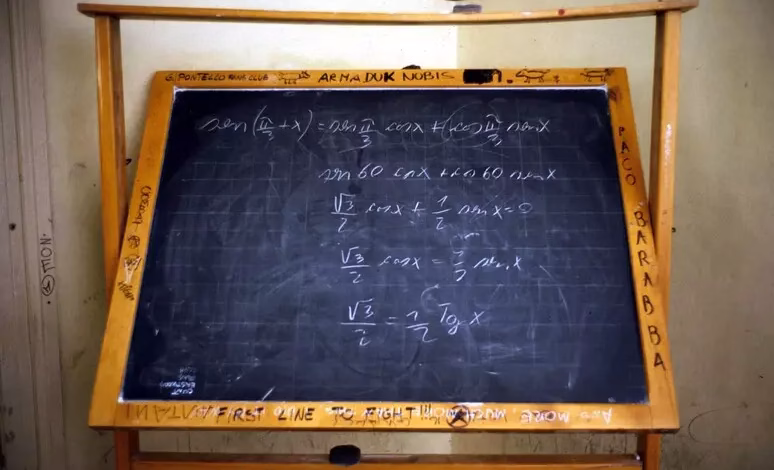 G. PONTELLO RANK CLUB ARMADUK NOBIS
sen(π/3 + x) = sen π/3 cos x + (cos π/3 sen x
sen 60 cos x + cos 60 sen x
√3/2 cos x + 1/2 sen x = 0
√3/2 cos x = 1/2 sen x
√3/2 = 1/2 Tg x
PACO BARABBA
CLINT
EASTWOOD
FIRST LINE TO FIGHT!!!
AND MORE, MUCH MORE